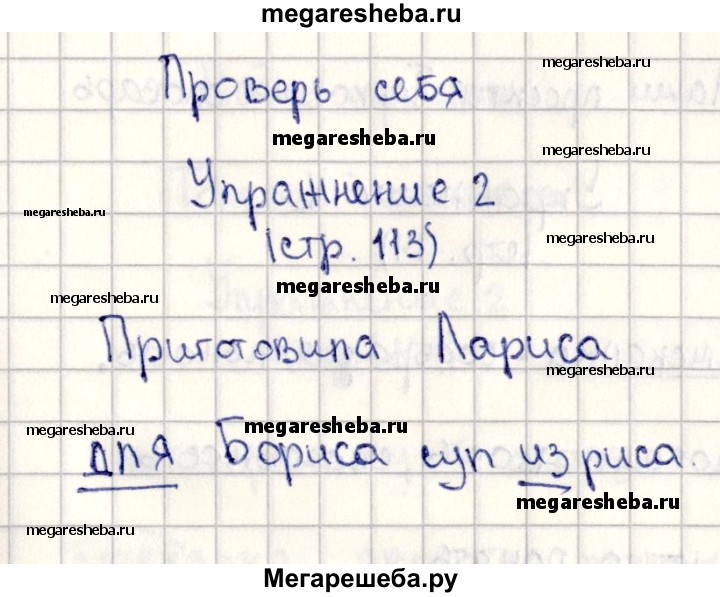 megaresheba.ru
megaresheba.ru
Проверь себя
megaresheba.ru
megaresheba.ru
Упражнение 2
megaresheba.ru
(стр. 113)
megaresheba.ru
megaresheba.ru
megaresheba.ru
Приготовила Лариса
megaresheba.ru
megaresheba.ru
megaresheba.ru
для Бориса суп из риса.
megaresheba.ru
megaresheba.ru
Мегарешеба.ру